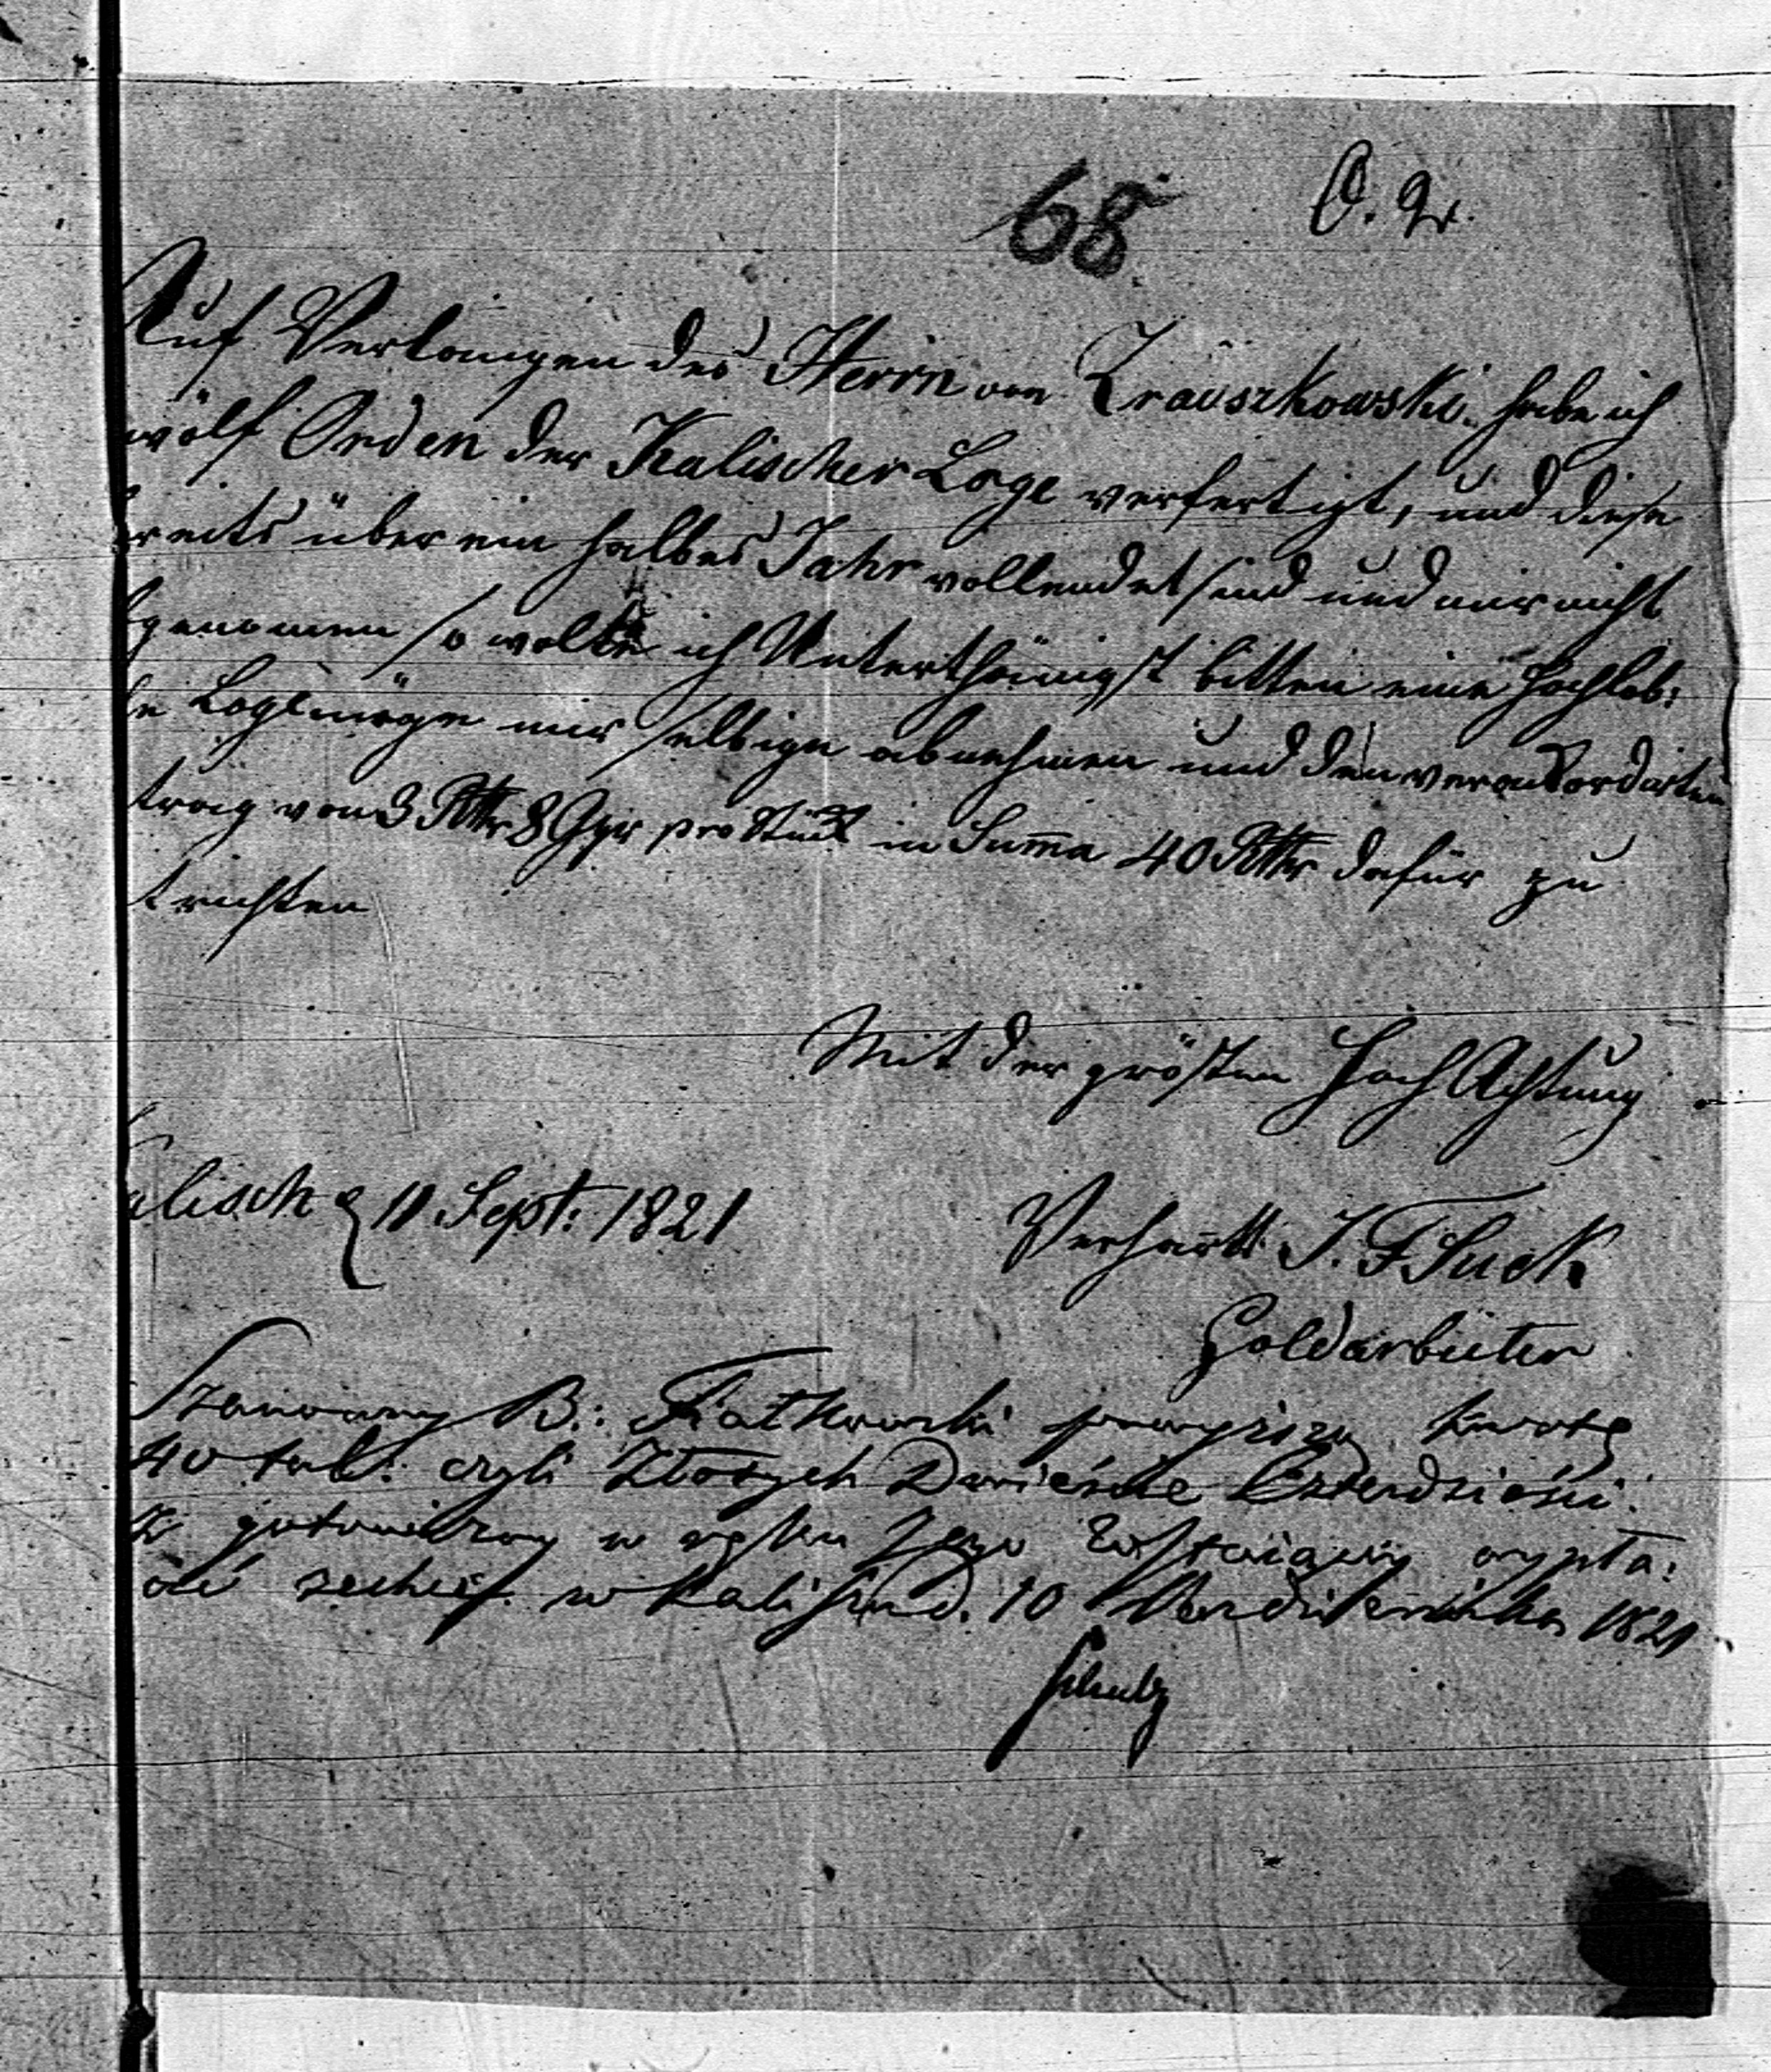 68
Auf Verlangen des Herrn von Zrauszkowski habe ich
wölf Orden der Kalischer Loge verfertigt, und diese
reits über ein halbes Jahr vollendet sind und mir nicht
genomen so wollte ich Unterthänigst bitten eine Hochlob:
e Loge möge mir selbige abnehmen und den veraccordirten
trag von 3 Rthr 8 Ggr pro Stück in Suma 40 Rthr dafür zu
trichten
Mit der grösten Hoch Achtung
alisch 11 Sept: 1821
Verharrt J. F Suck
Goldarbeiter
Szanowny B:. Fiatkowski powyższą kwotę
40 tal: czyli Złotych Dwieście Czterdzieści
z w ręku Jego wypła:
cić zechce. w Kaliszu d. 10 1821
Schultz